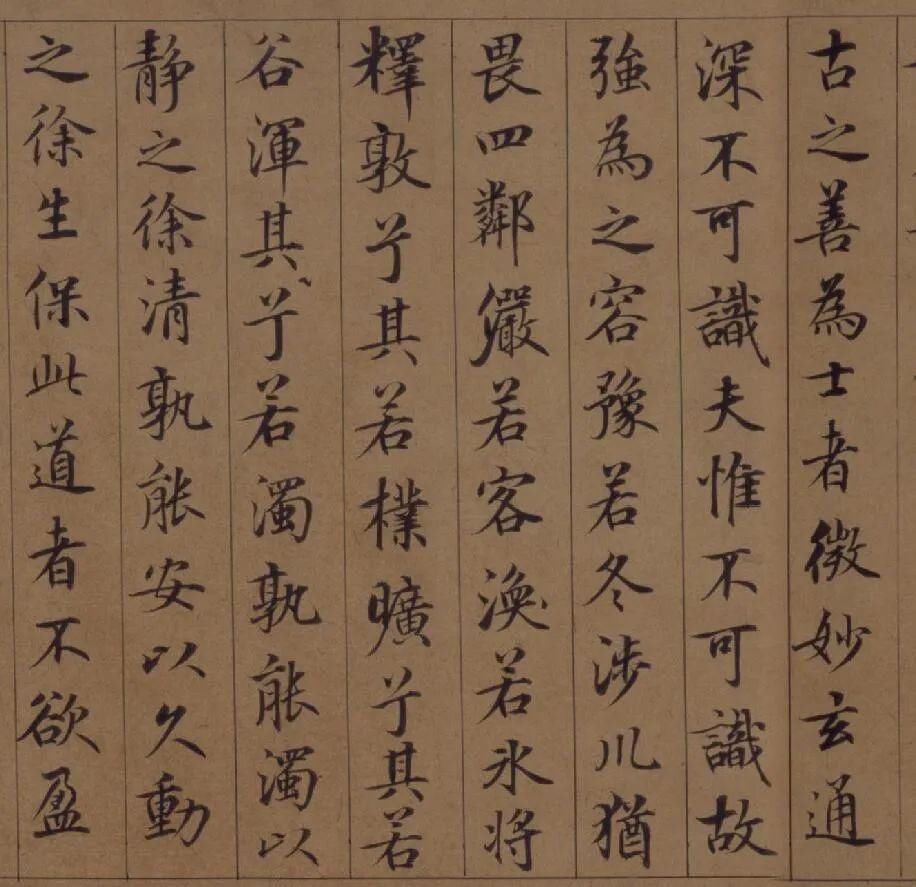 古之善為士者微妙玄通
深不可識夫惟不可識故
強為之容豫若冬涉川猶
畏四鄰儼若客渙若氷将
釋敦兮其若樸曠兮其若
谷渾其兮若濁孰能濁以
静之徐清孰能安以久動
之徐生保此道者不欲盈